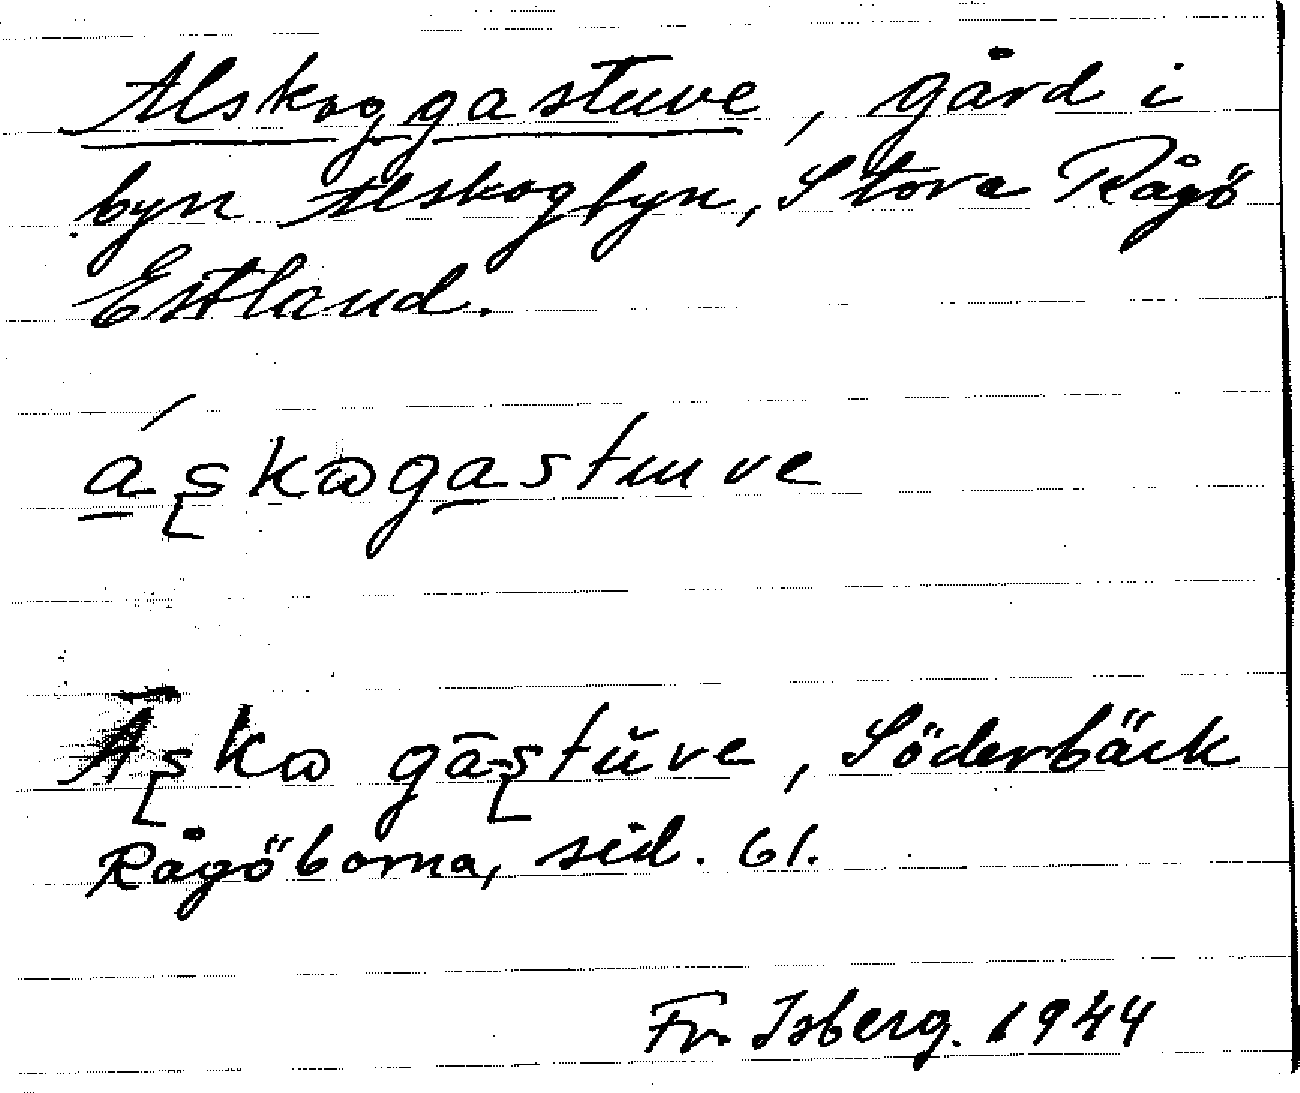 Alskoggastuve, gård i
byn Alskogbyn, Stora Rågö
Estland.
áskɷgastuve
Āskɷ gāstŭve, Söderbäck
Rågöborna, sid. 61.
Fr. Isberg. 1944